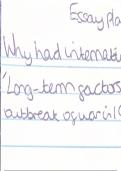 Essay pla
Why had internati
'Long-term factors
outbreak of war in 1